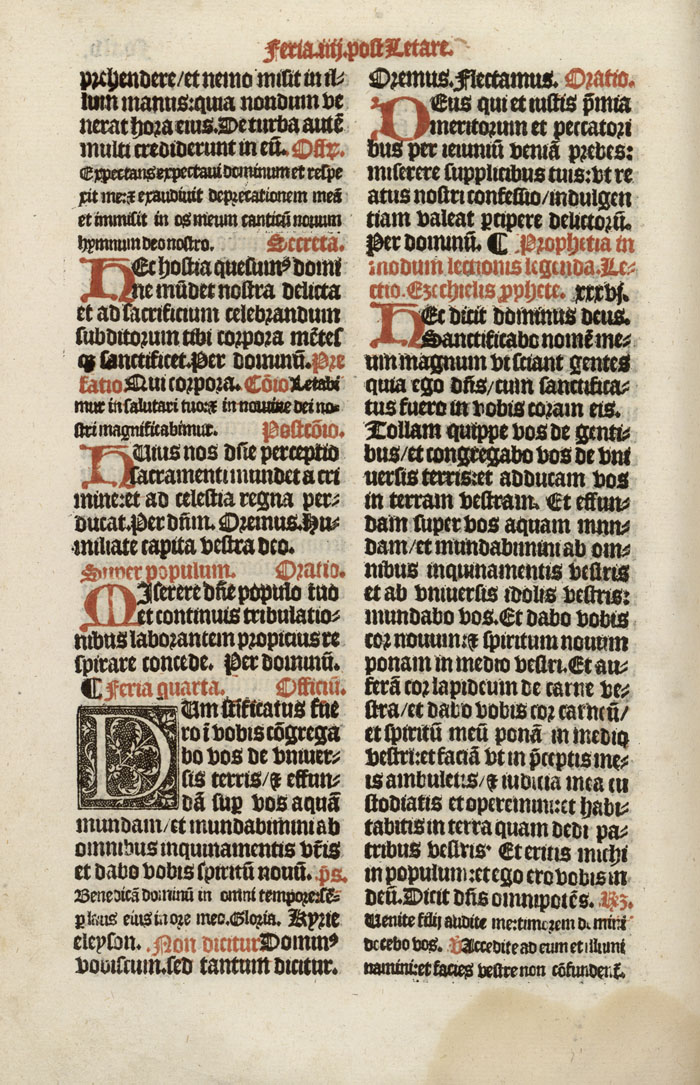 Feria.iiij.post Letare.
prehendere/et nemo misit in il-
lum manus:quia nondum ve
nerat hora eius. De turba autē
multi crediderunt in eū. Offr.
Expectans expectaui dominum et respe
xit me:⁊ exaudiuit deprecationem meā
et immisit in os meum canticū nouum
hymnum deo nostro. Secreta.
HEc hostia quesumꝰ domi
ne mūdet nostra delicta
et ad sacrificium celebrandum
subditorum tibi corpora mētes
qꝫ sanctificet. Per dominū. Pre
fatio Qui corpora. Cōio Letabi
mur in salutari tuo:⁊ in nomine dei no-
stri magnificabimur. Postcōio.
HUius nos dn̄e perceptio
sacramenti mundet a cri
mine:et ad celestia regna per-
ducat. Per dn̄m. Oremus. Hu-
miliate capita vestra deo.
Super populum. Oratio.
MIserere dn̄e populo tuo
et continuis tribulatio-
nibus laborantem propicius re
spirare concede. Per dominū.
¶ Feria quarta. Officiū.
DUm sctificatus fue
ro ī vobis cōgrega
bo vos de vniuer-
sis terris/⁊ effun-
dā suꝑ vos aquā
mundam/et mundabimini ab
omnibus inquinamentis vr̄is
et dabo vobis spiritū nouū. p̄s.
Benedicā dominū in omni tempore:sē-
per laus eius in ore meo. Gloria. Kyrie
eleyson. Non dicitur Dominꝰ
vobiscum. sed tantum dicitur.
Oremus. Flectamus. Oratio.
DEus qui et iustis p̄mia
meritorum et peccatori
bus per ieiuniū veniā prebes:
miserere supplicibus tuis:vt re
atus nostri confessio/indulgen
tiam valeat ꝑcipere delictorū.
Per dominū. ¶ Prophetia in
modum lectionis legenda. Le-
ctio. Ezechielis ꝓphete. xxxvj.
HEc dicit dominus deus.
Sanctificabo nomē me-
um magnum vt sciant gentes
quia ego dn̄s/cum sanctifica-
tus fuero in vobis coram eis.
Tollam quippe vos de genti-
bus/et congregabo vos de vni
uersis terris:et adducam vos
in terram vestram. Et effun-
dam super vos aquam mun-
dam/et mundabimini ab om-
nibus inquinamentis vestris
et ab vniuersis idolis vestris:
mundabo vos. Et dabo vobis
cor nouum:⁊ spiritum nouum
ponam in medio vestri. Et au-
ferā cor lapideum de carne ve-
stra/et dabo vobis cor carneū/
et spiritū meū ponā in medio
vestri:et faciā vt in p̄ceptis me-
is ambuletis/⁊ iudicia mea cu
stodiatis et operemini:et habi-
tabitis in terra quam dedi pa-
tribus vestris. Et eritis michi
in populum:et ego ero vobis in
deū. Dicit dn̄s omnipotēs. Rꝫ.
Venite filij audite me:timorem domini
docebo vos. ℣ Accedite ad eum et illumi
namini:et facies vestre non cōfundent̄.